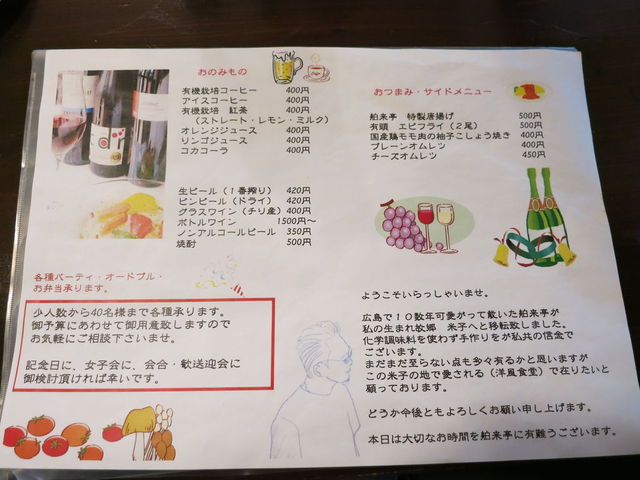 おのみもの
有機栽培コーヒー 400円
アイスコーヒー 400円
有機栽培 紅茶 400円
(ストレート・レモン・ミルク)
オレンジジュース 400円
リンゴジュース 400円
コカコーラ 400円
生ビール(1番搾り) 420円
ビンビール(ドライ) 420円
グラスワイン(チリ産) 400円
ボトルワイン 1500円~
ノンアルコールビール 350円
焼酎 500円
各種パーティ・オードブル・
お弁当承ります。
少人数から40名様まで各種承ります。
御予算にあわせて御用意致しますので
お気軽にご相談下さいませ。
記念日に、女子会に、会合・歓送迎会に
御検討頂ければ幸いです。
おつまみ・サイドメニュー
舶来亭 特製唐揚げ 500円
有頭 エビフライ(2尾) 500円
国産鶏モモ肉の柚子こしょう焼き 400円
プレーンオムレツ 400円
チーズオムレツ 450円
ようこそいらっしゃいませ。
広島で10数年可愛がって戴いた舶来亭が
私の生まれ故郷 米子へと移転致しました。
化学調味料を使わず手作りをが私共の信念で
ございます。
まだまだ至らない点も多々有るかと思いますが
この米子の地で愛される(洋風食堂)で在りたいと
願っております。
どうか今後ともよろしくお願い申し上げます。
本日は大切なお時間を舶来亭に有難うございます。